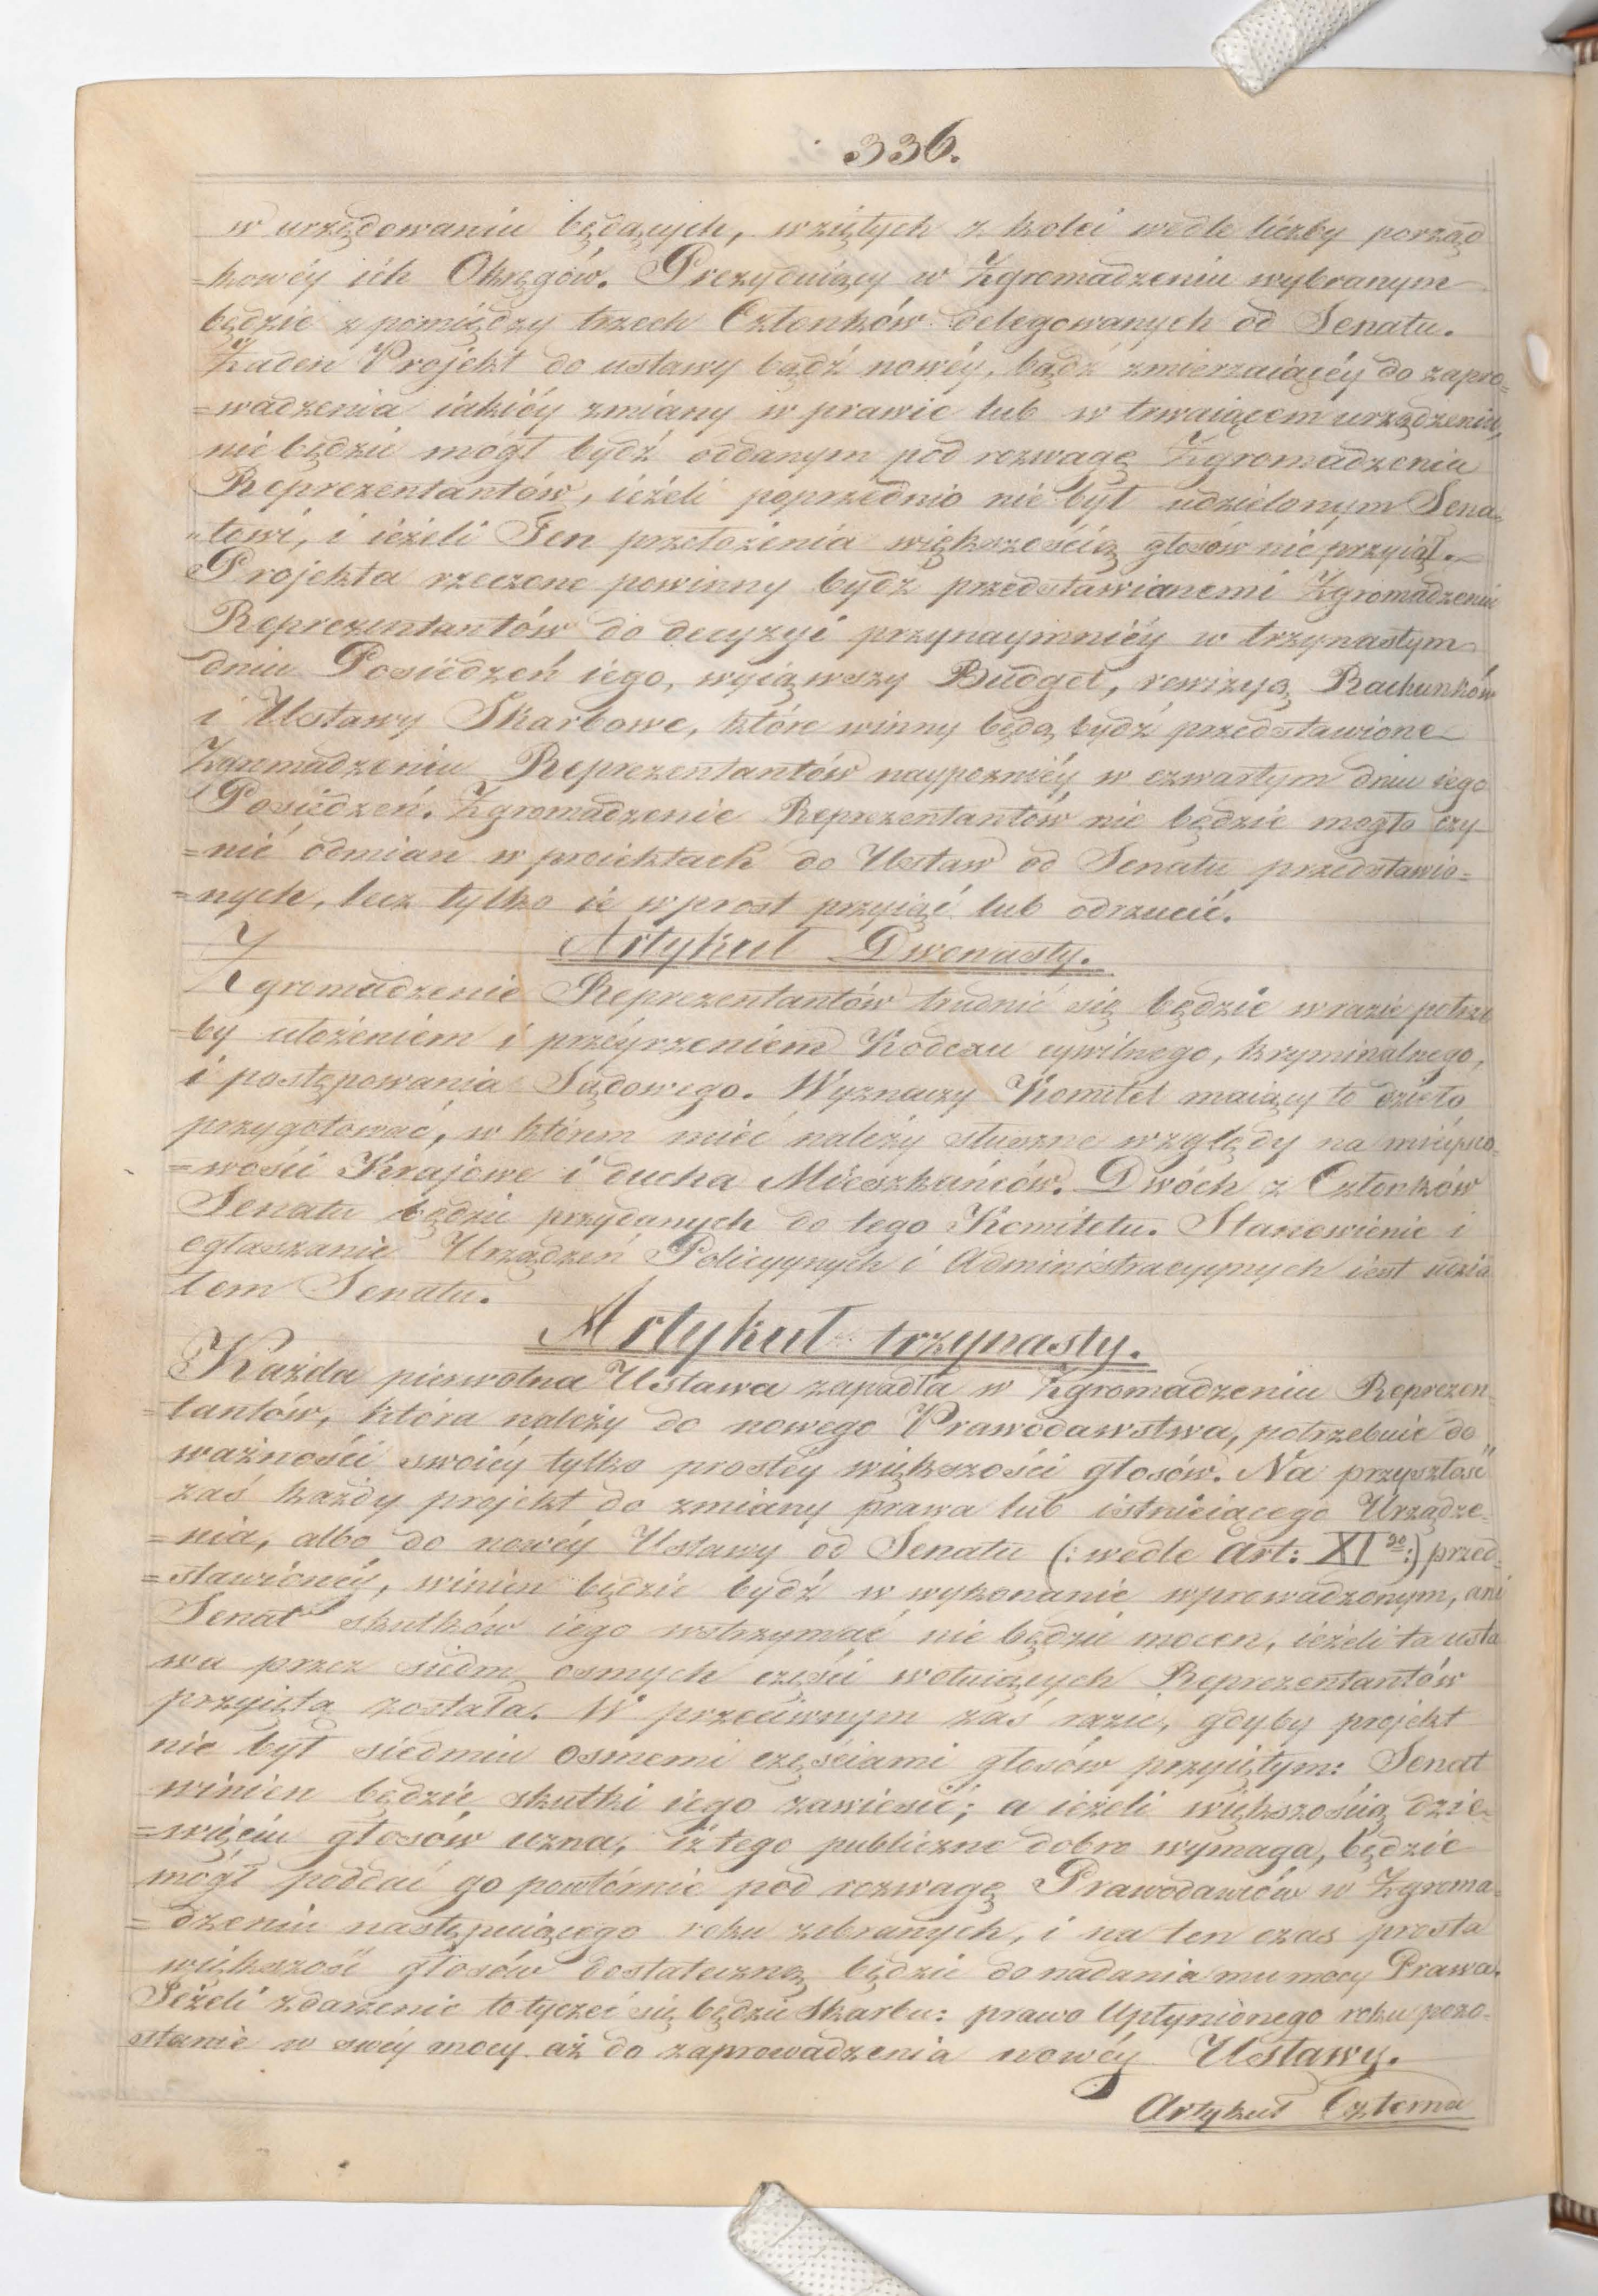 336.
w urzędowaniu będących, wziętych z kolei wedle liczby porząd
=kowéy ich Okręgów. Prezyduiący w Zgromadzeniu wybranym
będzie z pomiędzy trzech Członków delegowanych od Senatu.
Żaden Projekt do ustawy bądź nowéy, bądź zmierzaiącéy do zapro=
=wadzenia iakiéy zmiany w prawie lub w trwaiącem urządzeniu,
nie będzie mógł bydź oddanym pod rozwagę Zgromadzenia
Reprezentantów, ieżeli poprzednio nie był udzielonym Sena=
"towi, i ieżeli Ten przełożenia większością głosów nie przyiął.
Projekta rzeczone powinny bydź przedstawianemi Zgromadzeniu
Reprezentantów do decyzyi przynaymniéy w trzynastym
dniu Posiedzeń iego, wyiąwszy Budget, rewizyą Rachunków
i Ustawy Skarbowe, które winny będą bydź przedstawione
Zgromadzeniu Reprezentantów naypoźniéy w czwartym dniu iego
Posiedzeń. Zgromadzenie Reprezentantów nie będzie mogło czy-
=nić odmian w proiektach do Ustaw od Senatu przedstawio=
=nych, lecz tylko ie wprost przyiąć lub odrzucić.
Artykuł Dwonasty.
Zgromadzenie Reprezentantów trudnić się będzie w razie potrze
by ułożeniem i przéyrzeniem Kodexu cywilnego, kryminalnego,
i postępowania Sądowego. Wyznaczy Komitet maiący to dzieło
przygotować, w którem mieć należy słuszne względy na mieysco=
=wości Krajowe i ducha Mieszkańców. Dwóch z Członków
Senatu będzie przydanych do tego Komitetu. Stanowienie i
ogłaszanie Urządzeń Policyynych i Administracyynych iest udzia
łem Senatu.
Artykuł trzynasty.
Każda pierwotna Ustawa zapadła w Zgromadzeniu Reprezen
tantów, która należy do nowego Prawodawstwa, potrzebuie do
ważności swoiéy tylko prostéy większości głosów. Na przyszłość
zaś każdy projekt do zmiany prawa lub istnieiącego Urządze=
=nia, albo do nowéy Ustawy od Senatu (: wedle Art: XI go :) przed=
=stawionéy, winien będzie bydź w wykonanie wprowadzonym, ani
Senat skutków iego wstrzymać nie będzie mocen, ieżeli ta usta
wa przez siedm osmych części wotuiących Reprezentantów
przyięta została. W przeciwnym zaś razie, gdyby projekt
nie był siedmiu osmemi częściami głosów przyiętym: Senat
winien będzie skutki iego zawiesić; a ieżeli większością dzie=
=więciu głosów uzna, iż tego publiczne dobro wymaga, będzie
mógł poddać go powtórnie pod rozwagę Prawodawców w Zgroma=
=dzeniu następuiącego roku zebranych, i na ten czas prosta
większość głosów dostateczną będzie do nadania mu mocy Prawa.
Jeżeli zdarzenie to tyczeć się będzie Skarbu: prawo Upłynionego roku pozo-
stanie w swéy mocy aż do zaprowadzenia nowéy Ustawy.
Artykuł Czterna